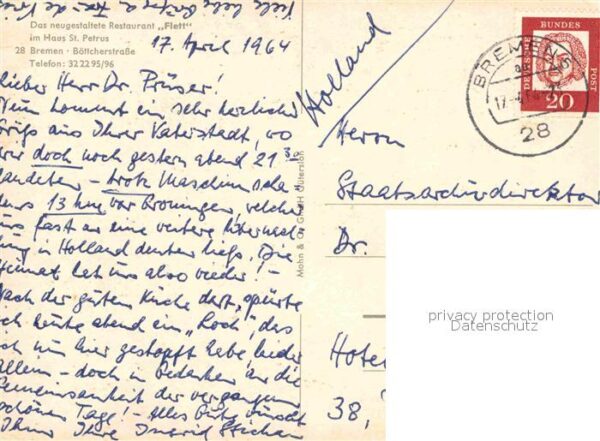 Das neugestaltete Restaurant „Flett"
im Haus St. Petrus
28 Bremen · Böttcherstraße
Telefon: 32 22 95/96
17. April 1964
lieber Herr Dr. Prüser!
Nun kommt ein sehr herzlicher
Gruß aus Ihrer Vaterstadt, wo
wir doch noch gestern abend 21 30
landeten – trotz Maschinenscha-
dens 13 km vor Groningen, welcher
uns fast an eine weitere Übernach-
tung in Holland denken ließ. Die
Heimat hat uns also wieder! –
Nach der guten Küche dort, spürte
ich heute abend ein „Loch", das
ich mir hier gestopft habe, leider
allein – doch in Gedanken an die
Gemeinsamkeit der vergangenen
schönen Tage! – Alles Gute wünscht
Ihnen Ihre Ingrid
Mohn & Co GmbH Gütersloh
Holland
DEUTSCHE BUNDESPOST
20
BREMEN 5
28
Herrn
Staatsarchivdirektor
Dr.
Hote
38,
privacy protection
Datenschutz